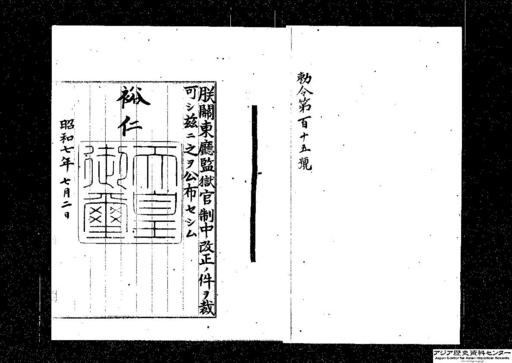 勅令第百十五號
朕關東廳監獄官制中改正ノ件ヲ裁
可シ茲ニ之ヲ公布セシム
裕仁
天皇
御璽
昭和七年七月二日
アジア歴史資料センター
Japan Center for Asian Historical Records